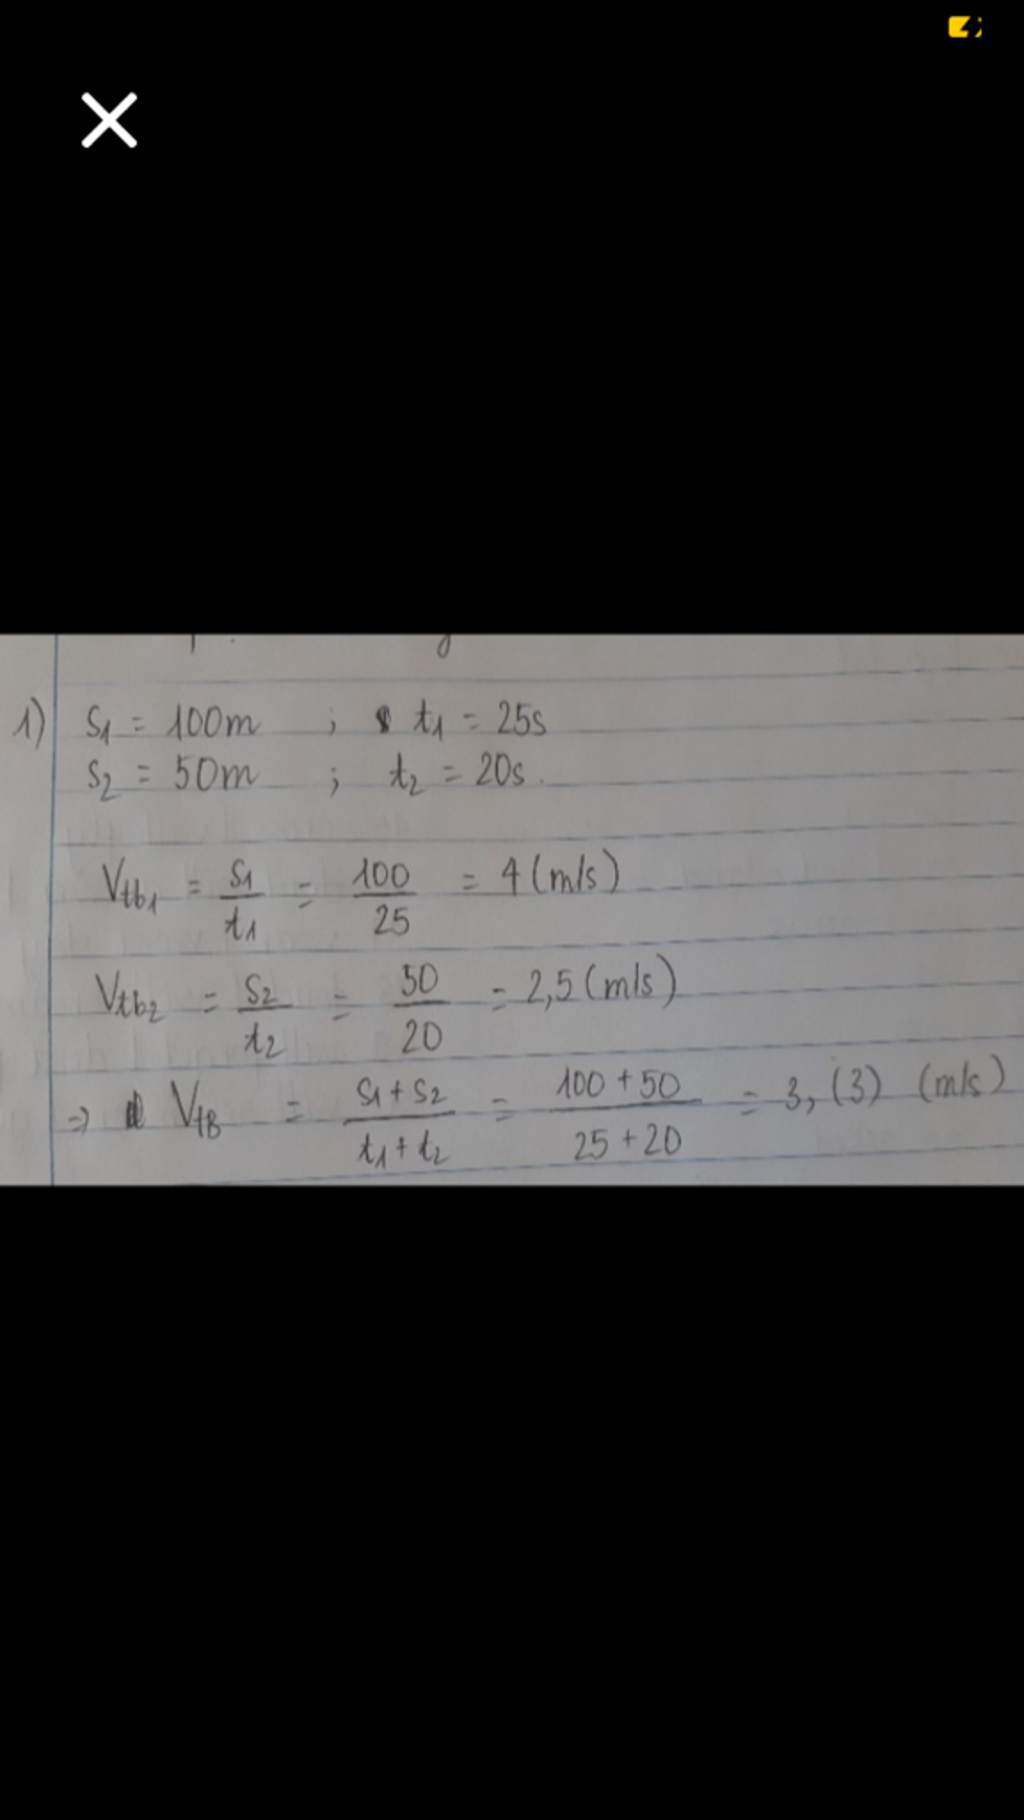 1) S1 = 100m ; t1 = 25s
S2 = 50m ; t2 = 20s.
Vtb1 = S1/t1 = 100/25 = 4 (m/s)
Vtb2 = S2/t2 = 50/20 = 2,5 (m/s)
=> VtB = S1 + S2/t1 + t2 = 100 + 50/25 + 20 = 3,(3) (m/s)